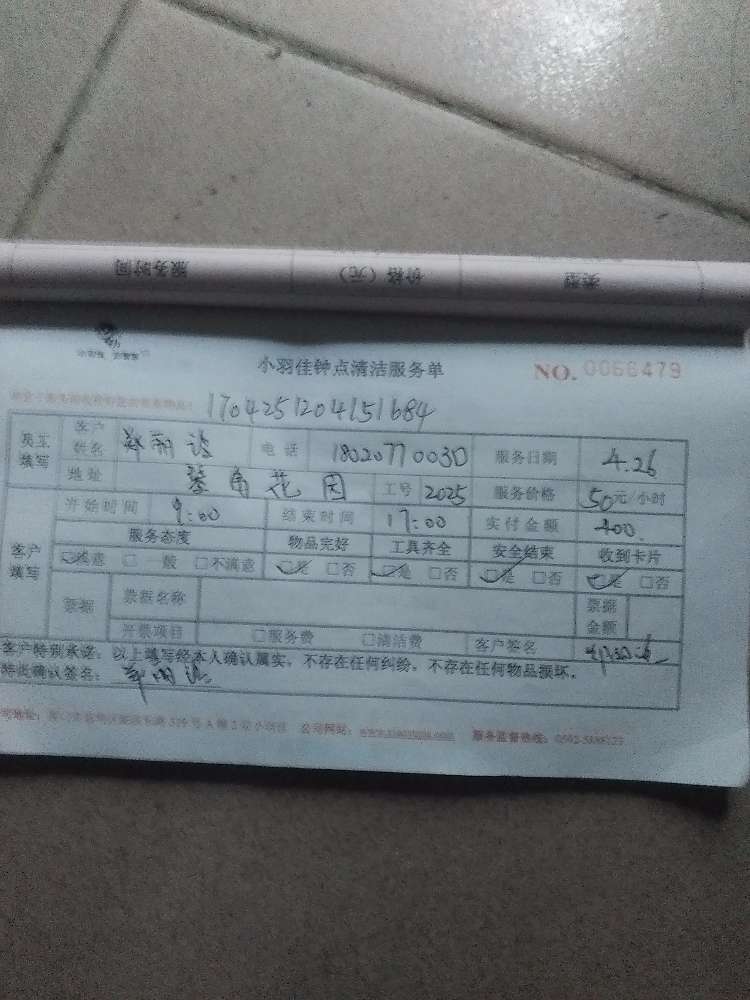 服务时间 价格（元） 类型
小羽佳钟点清洁服务单 NO. 0066479
1704251204151684
员工填写 客户姓名 郑丽 电话 18020770030 服务日期 4.26
地址 琴角花园 工号 2025 服务价格 50元/小时
客户填写 开始时间 9:00 结束时间 17:00 实付金额 400.
服务态度 物品完好 工具齐全 安全结束 收到卡片
☑满意 □一般 □不满意 ☑是 □否 ☑是 □否 ☑是 □否 ☑是 □否
票据 票据名称 票据金额
开票项目 □服务费 □清洁费 客户签名
客户特别承诺：以上填写经本人确认属实，不存在任何纠纷，不存在任何物品损坏。
特此确认签名：
公司网站： 服务监督热线：